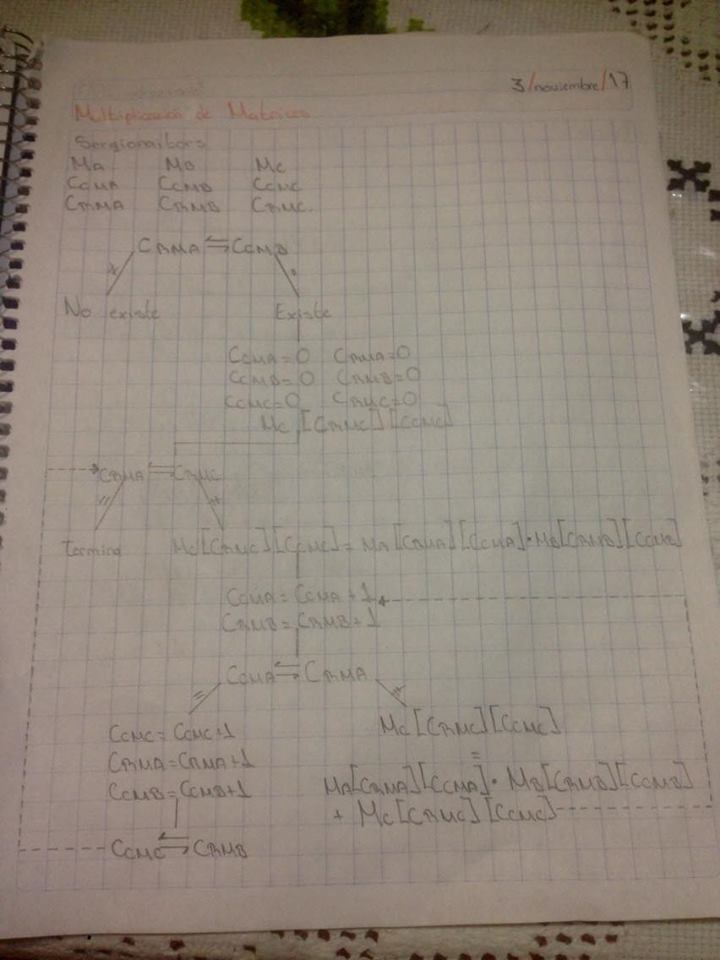 3/noviembre/17
Multiplicación de Matrices
Ma Mb Mc
CcMA CcMB CcMC
CRMA CRMB CRMC
CRMA ⇆ CcMB
No existe Existe
CcMA=0 CRMA=0
CcMB=0 CRMB=0
CcMC=0 CRMC=0
Mc [CRMC] [CcMC]
CRMA ⇆ CRMC
Termina Mc[CRMC][CcMC] = MA[CRMA][CcMA]·MB[CRMB][CcMB]
CcMA = CcMA + 1
CRMB = CRMB + 1
CcMA ⇆ CRMA
CcMC = CcMC+1 Mc[CRMC][CcMC]
CRMA = CRMA+1 =
CcMB = CcMB+1 MA[CRMA][CcMA]· MB[CRMB][CcMB]
+ Mc[CRMC][CcMC]
CcMC ⇆ CRMB